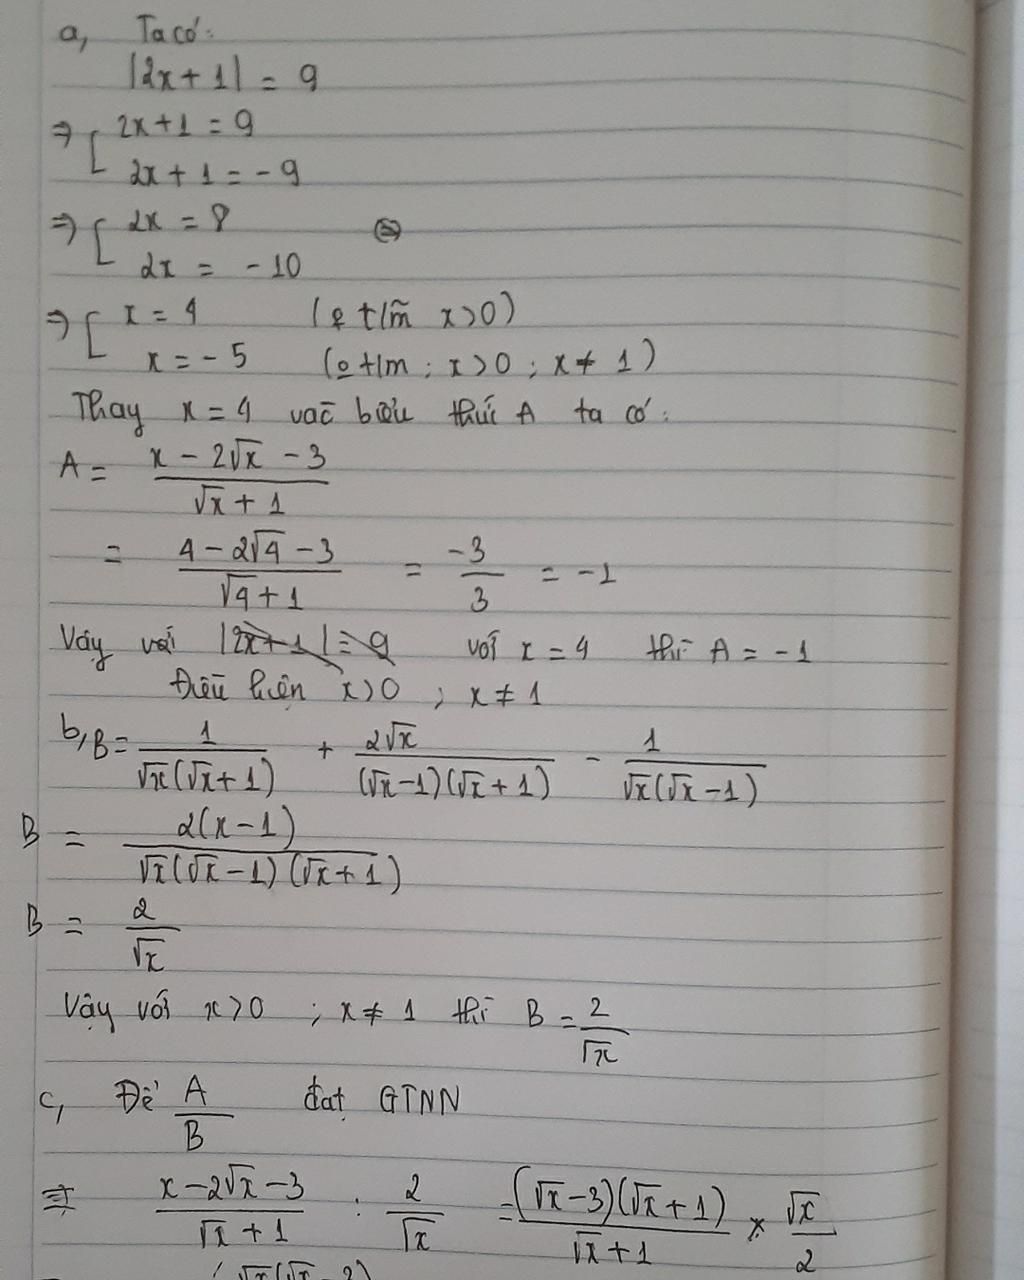 a, Ta có:
|2x + 1| = 9
⇒ [ 2x + 1 = 9
2x + 1 = -9
⇒ [ 2x = 8
2x = -10
⇒ [ x = 4 ( t/m x > 0)
x = -5 ( t/m ; x > 0 ; x ≠ 1)
Thay x = 4 vào biểu thức A ta có:
A = (x - 2√x - 3)/(√x + 1)
= (4 - 2√4 - 3)/(√4 + 1) = -3/3 = -1
Vậy với |2x + 1| = 9 với x = 4 thì A = -1
Điều kiện x > 0 ; x ≠ 1
b, B = 1/(√x(√x + 1)) + 2√x/((√x - 1)(√x + 1)) - 1/(√x(√x - 1))
B = 2(x - 1)/(√x(√x - 1)(√x + 1))
B = 2/√x
Vậy với x > 0 ; x ≠ 1 thì B = 2/√x
c, Để A/B đạt GTNN
(x - 2√x - 3)/(√x + 1) : 2/√x = (√x - 3)(√x + 1)/(√x + 1) × √x/2